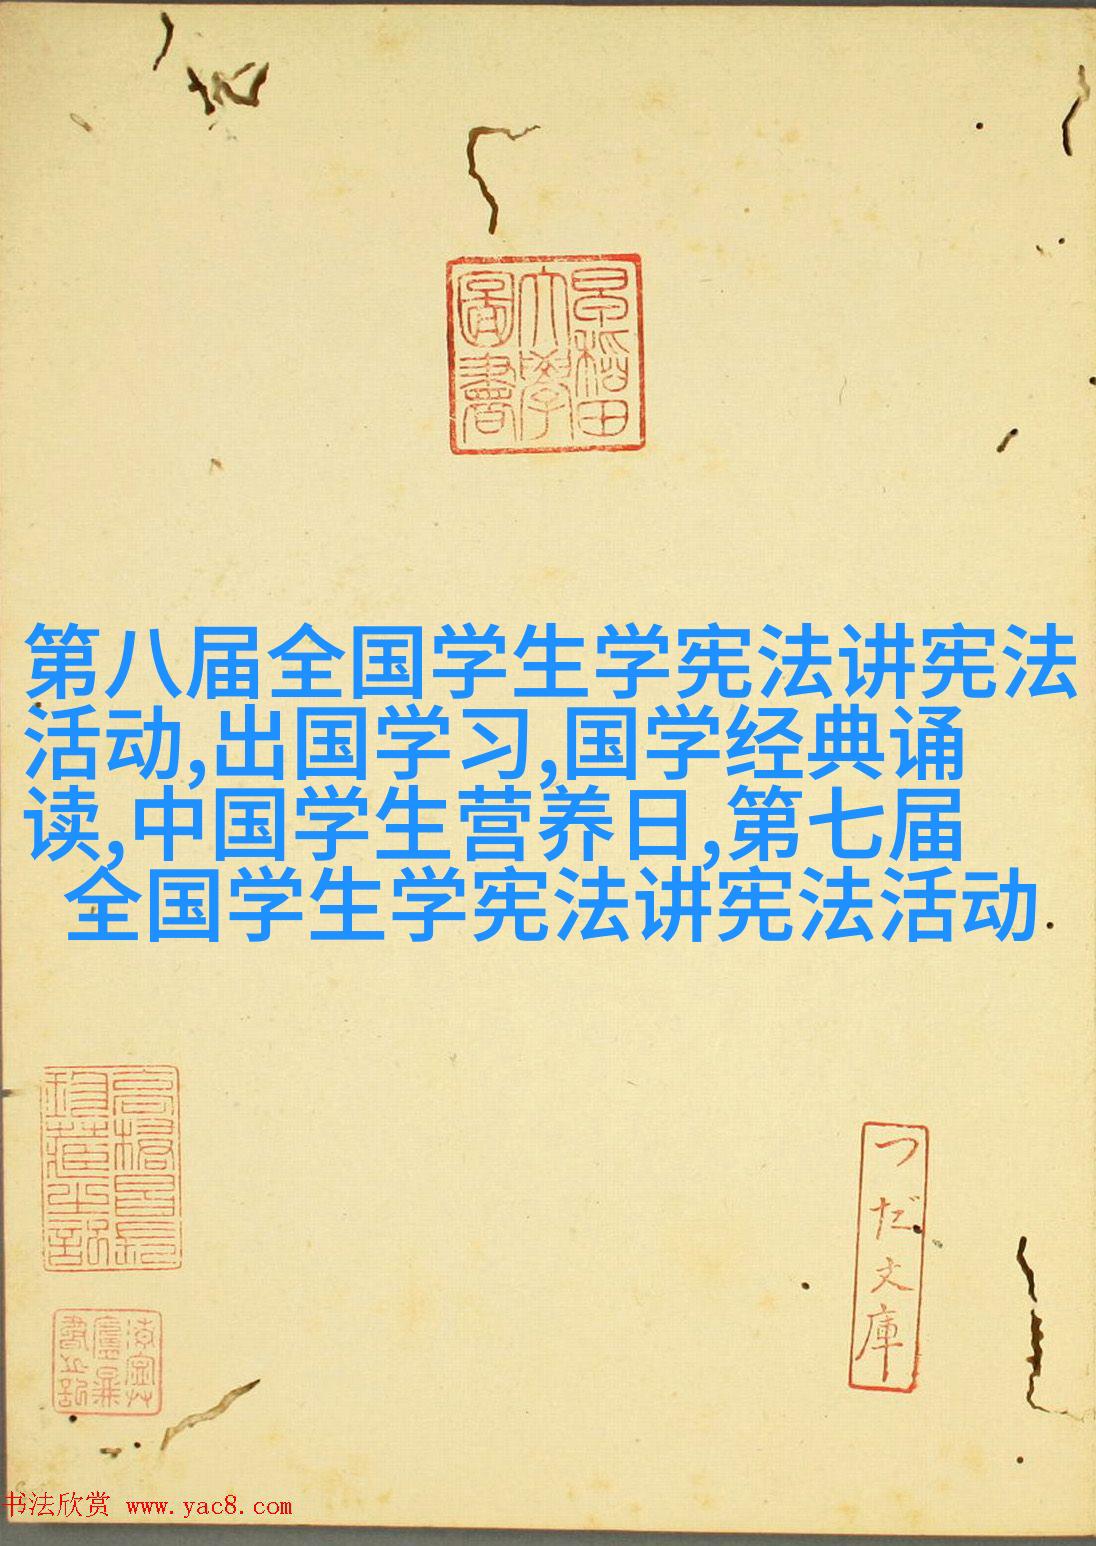 早稲田大學圖書
第八届全国学生学宪法讲宪法
活动,出国学习,国学经典诵
读,中国学生营养日,第七届
全国学生学宪法讲宪法活动
つだ文庫
书法欣赏 www.yac8.com